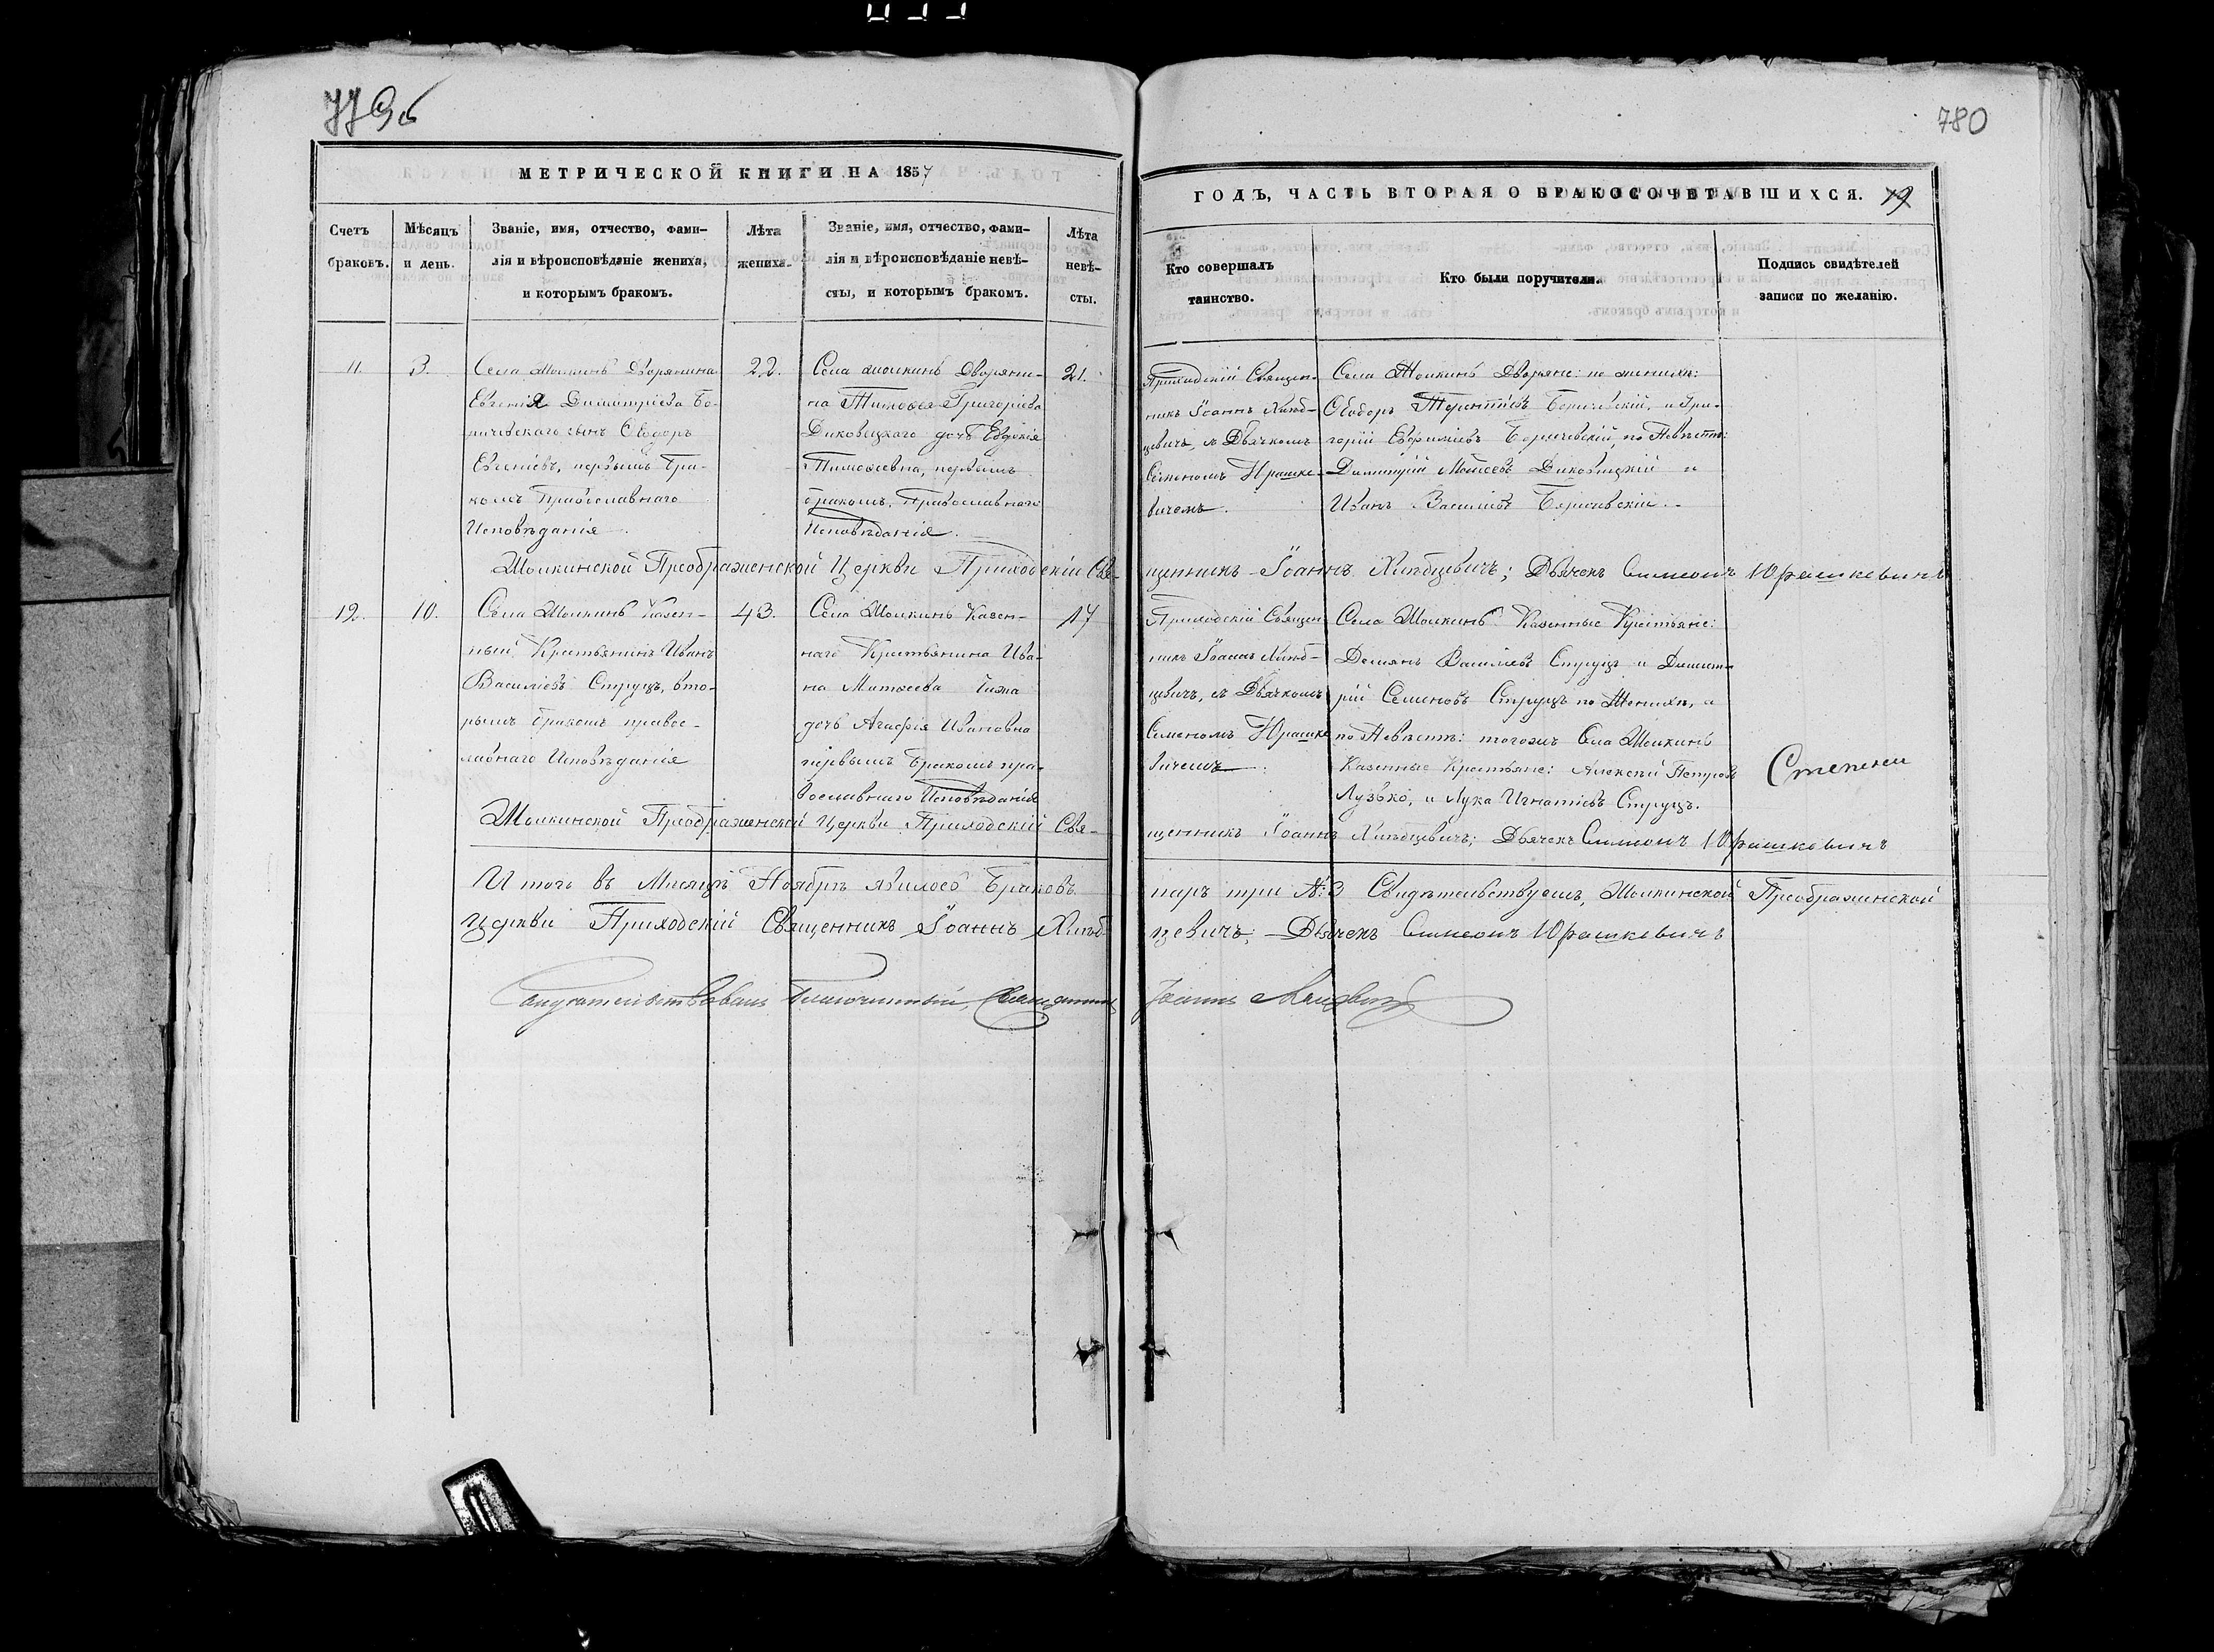 779б
780
МЕТРИЧЕСКОЙ КНИГИ НА 1857
ГОДЪ, ЧАСТЬ ВТОРАЯ О БРАКОСОЧЕТАВШИХСЯ. 19
Счетъ браковъ.
Мѣсяцъ и день.
Званіе, имя, отчество, фами-
лія и вѣроисповѣданіе жениха,
и которымъ бракомъ.
Лѣта
жениха.
Званіе, имя, отчество, фами-
лія и вѣроисповѣданіе невѣ-
сты, и которымъ бракомъ.
Лѣта
невѣ-
сты.
Кто совершалъ
таинство.
Кто были поручители.
Подпись свидѣтелей
записи по желанію.
11.
3.
Села Молкинъ Дворянина
Евгенія Димитріева Бо-
ричевскаго сынъ Ѳеодоръ
Евгеніевъ, первымъ бра-
комъ Православнаго
Исповѣданія.
22.
Села Молкинъ Дворяни-
на Тимоѳея Григоріева
Диковицкаго дочь Евдокія
Тимоѳеевна, первымъ
бракомъ, Православнаго
Исповѣданія.
21.
Приходскій Священ-
никъ Іоаннъ Хлѣб-
цевичъ, съ Дьячкомъ
Семеномъ Юрашке-
вичемъ.
Села Молкинъ Дворяне: по женихѣ:
Ѳеодоръ Терентіевъ Боричевскій, и Гри-
горій Евфиміевъ Боричевскій, по Невѣстѣ:
Димитрій Моисеевъ Диковицкій и
Иванъ Василіевъ Боричевскій.
Молкинской Преображенской Церкви Приходскій Свя-
щенникъ Іоаннъ Хлѣбцевичъ; Дьячекъ Симеонъ Юрашкевичъ
12.
10.
Села Молкинъ Казен-
ный Крестьянинъ Иванъ
Василіевъ Струцъ, вто-
рымъ бракомъ правос-
лавнаго Исповѣданія
43.
Села Молкинъ Казен-
наго Крестьянина Ива-
на Матѳеева
дочь Агафія Ивановна
первымъ бракомъ пра-
вославнаго Исповѣданія
17
Приходскій Священ-
никъ Іоаннъ Хлѣб-
цевичъ, съ Дьячкомъ
Семеномъ Юрашке-
вичемъ.
Села Молкинъ Казенные Крестьяне:
Демянъ Василіевъ Струцъ и Димит-
рій Семеновъ Струцъ по Женихѣ, а
по Невѣстѣ: тогожъ Села Молкинъ
Казенные Крестьяне: Алексѣй Петровъ
Лузько, и Лука Игнатіевъ Струцъ.
Степени
Молкинской Преображенской Церкви Приходскій Свя-
щенникъ Іоаннъ Хлѣбцевичъ; Дьячекъ Симеонъ Юрашкевичъ
Итого въ Мѣсяцѣ Ноябрѣ явилось Браковъ
паръ три №: 3 Свидѣтельствуемъ, Молкинской Преображенской
Церкви Приходскій Священникъ Іоаннъ Хлѣб-
цевичъ; Дьячекъ Симеонъ Юрашкевичъ
Свидѣтельствовалъ Благочинный, Священникъ
Іоаннъ